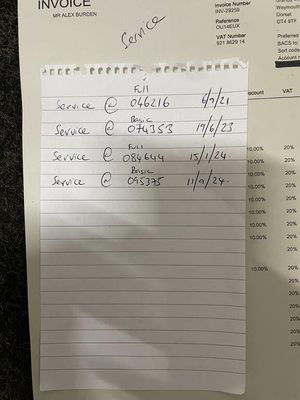 INVOICE
MR ALEX BURDEN
Invoice Number
INV-29259
Reference
OU14EUX
VAT Number
921 8629 14
Weymouth
Dorset
DT4 9TP
Preferred
BACS to
Sort code
Account
Service
Full
Service @ 046216 6/9/21
Basic
Service @ 074353 19/6/23
Full
Service @ 084644 15/1/24
Basic
Service @ 095375 11/9/24.
VAT
10.00% 20%
20%
10.00% 20%
20%
10.00% 20%
20%
10.00% 20%
20%
20%
10.00% 20%
20%
20%